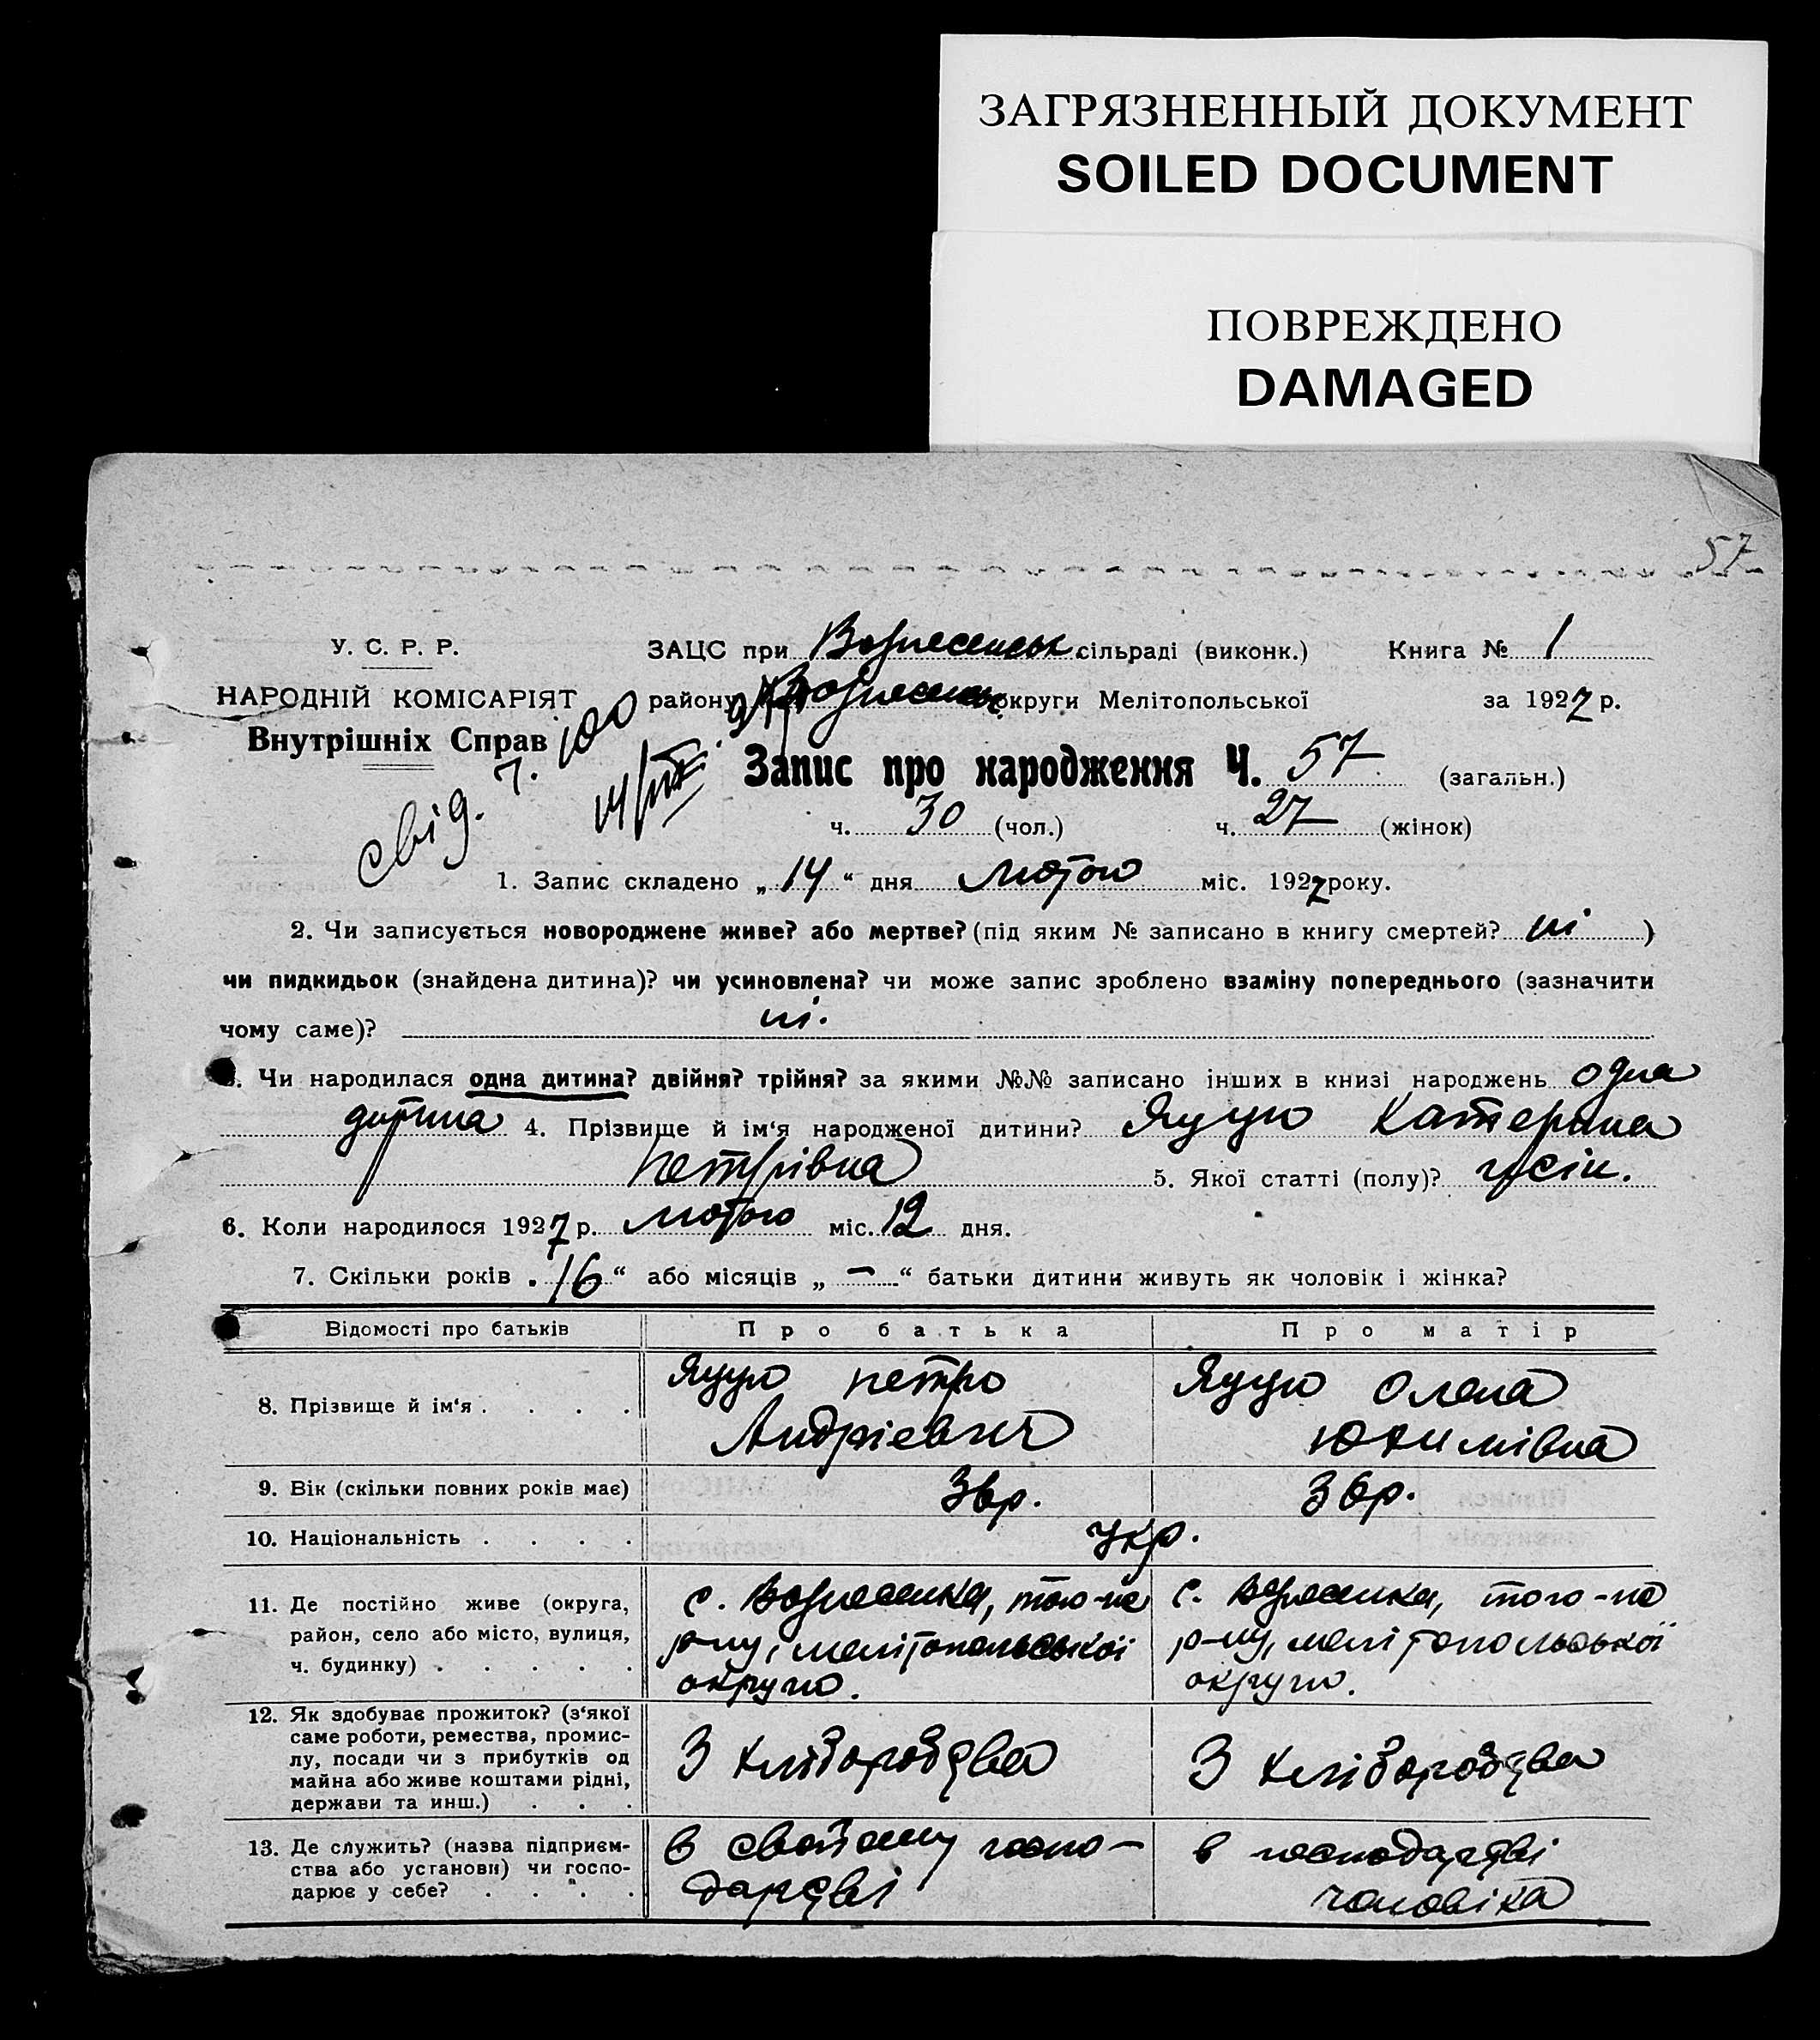 ЗАГРЯЗНЕННЫЙ ДОКУМЕНТ
SOILED DOCUMENT
ПОВРЕЖДЕНО
DAMAGED
57
У. С. Р. Р.
НАРОДНІЙ КОМІСАРІЯТ
Внутрішніх Справ
ЗАЦС при Вознесенськ. сільраді (виконк.) Книга № 1
району Вознесенськ округи Мелітопольської за 1927 р.
свід. ч. 100
Запис про народження Ч. 57 (загальн.)
ч. 30 (чол.) ч. 27 (жінок)
1. Запис складено „14“ дня лютого міс. 1927 року.
2. Чи записується новороджене живе? або мертве? (під яким № записано в книгу смертей? ні )
чи пидкидьок (знайдена дитина)? чи усиновлена? чи може запис зроблено взаміну попереднього (зазначити
чому саме)? ні.
Чи народилася одна дитина? двійня? трійня? за якими №№ записано інших в книзі народжень одна
дитина 4. Прізвище й ім‘я народженої дитини? Яцуло Катерина
Петрівна 5. Якої статті (полу)? жін.
6. Коли народилося 1927 р. лютого міс. 12 дня.
7. Скільки років „16“ або місяців „ — “ батьки дитини живуть як чоловік і жінка?
Відомості про батьків Про батька Про матір
8. Прізвище й ім‘я . . . . Петро Андрієвич Олена Юхимівна
9. Вік (скільки повних років має) 36р. 36р.
10. Національність . . . . Укр.
11. Де постійно живе (округа,
район, село або місто, вулиця,
ч. будинку) . . . . .
с. Вознесенка, того-же
р-ну, мелітопольської
округи.
с. Вознесенка, того-же
р-ну, мелітопольської
округи.
12. Як здобуває прожиток? (з‘якої
саме роботи, ремества, промис-
лу, посади чи з прибутків од
майна або живе коштами рідні,
держави та инш.) . . .
З хліборобства
З хліборобства
13. Де служить? (назва підприєм-
ства або установи) чи госпо-
дарює у себе? . . . .
в своїому госпо-
дарстві
в господарстві
чоловіка